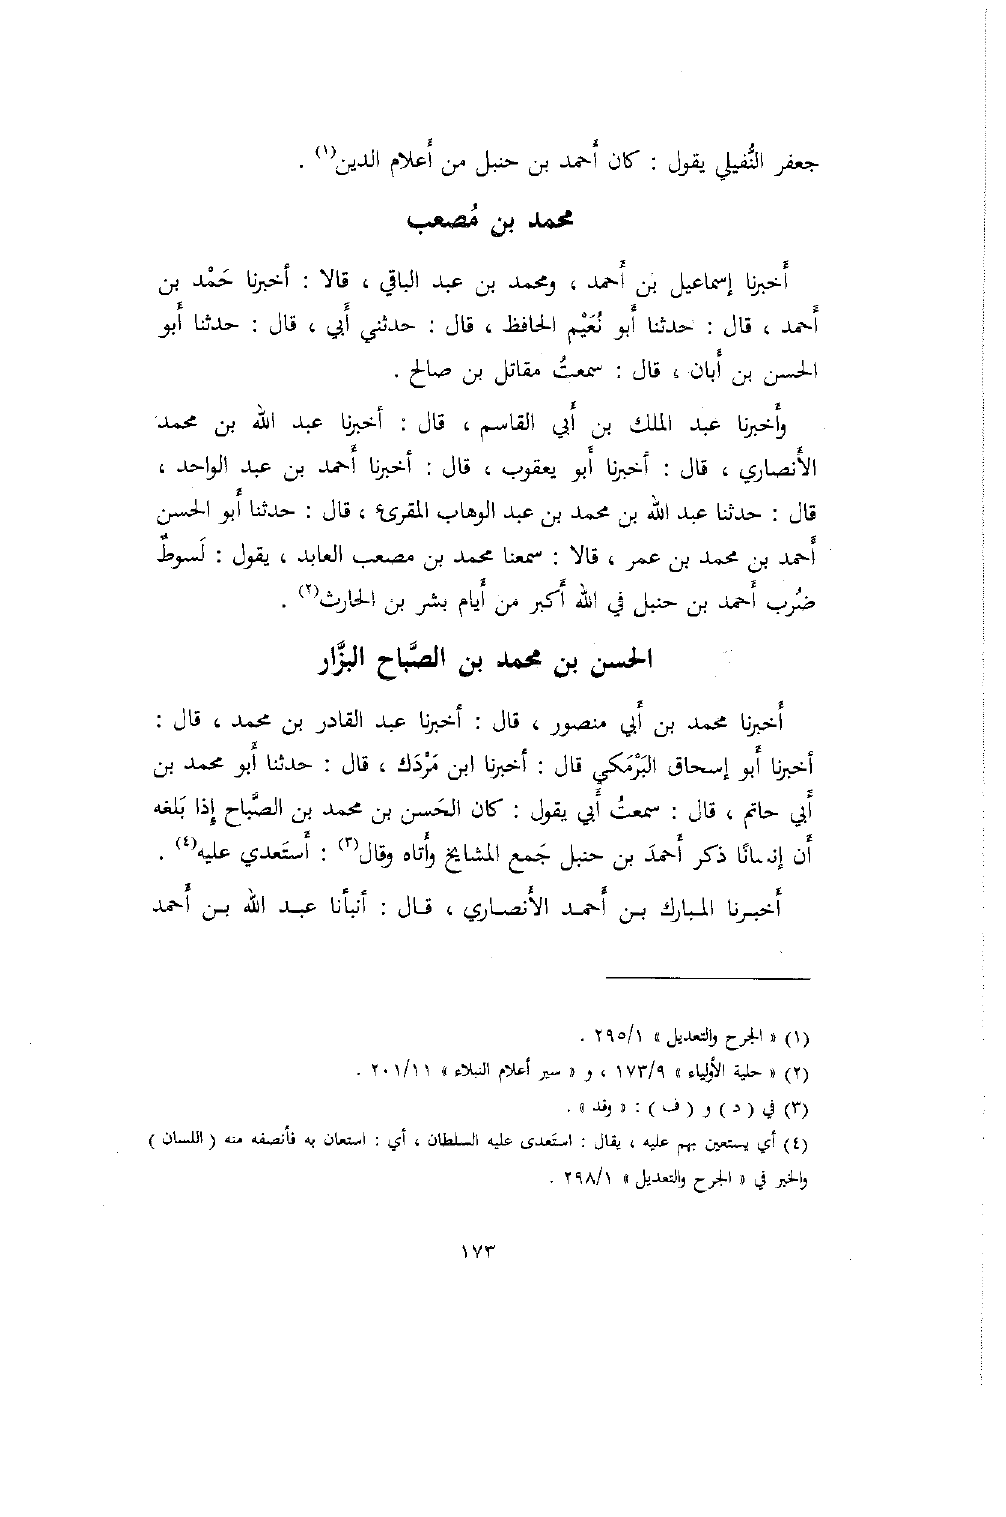 جعفر النُّفيلي يقول : كان أَحمد بن حنبل من أَعلام الدين(١) .
محمد بن مُصعب
أَخبرنا إسماعيل بن أَحمد ، ومحمد بن عبد الباقي ، قالا : أخبرنا حَمْد بن
أَحمد ، قال : حدثنا أَبو نُعَيْم الحافظ ، قال : حدثني أَبي ، قال : حدثنا أَبو
الحسن بن أَبان ، قال : سمعتُ مقاتل بن صالح .
وأَخبرنا عبد الملك بن أَبي القاسم ، قال : أخبرنا عبد الله بن محمد
الأَنصاري ، قال : أخبرنا أَبو يعقوب ، قال : أخبرنا أَحمد بن عبد الواحد ،
قال : حدثنا عبد الله بن محمد بن عبد الوهاب المقرىء ، قال : حدثنا أَبو الحسن
أَحمد بن محمد بن عمر ، قالا : سمعنا محمد بن مصعب العابد ، يقول : لَسوطٌ
ضُرب أَحمد بن حنبل في الله أَكبر من أَيام بشر بن الحارث(٢) .
الحسن بن محمد بن الصَّباح البزَّار
أَخبرنا محمد بن أَبي منصور ، قال : أَخبرنا عبد القادر بن محمد ، قال :
أخبرنا أَبو إسحاق البَرْمَكي قال : أخبرنا ابن مَرْدَك ، قال : حدثنا أَبو محمد بن
أَبي حاتم ، قال : سمعتُ أَبي يقول : كان الحَسن بن محمد بن الصَّباح إِذا بَلغه
أَن إنسانًا ذكر أَحمدَ بن حنبل جَمع المشايخ وأَتاه وقال(٣) : أَستَعدي عليه(٤) .
أَخبـرنا المـبارك بـن أَحمـد الأَنصـاري ، قـال : أنبأنا عبـد الله بـن أَحمد
(١) « الجرح والتعديل » ٢٩٥/١ .
(٢) « حلية الأولياء » ١٧٣/٩ ، و « سير أعلام النبلاء » ٢٠١/١١ .
(٣) في ( د ) و ( ف ) : « وقد » .
(٤) أي يستعين بهم عليه ، يقال : استَعدى عليه السلطان ، أي : استعان به فأنصفه منه ( اللسان )
والخبر في « الجرح والتعديل » ٢٩٨/١ .
١٧٣